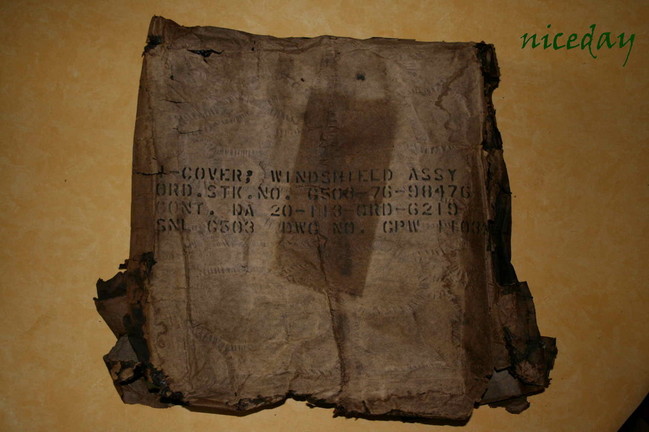 niceday
1-COVER; WINDSHIELD ASSY
ORD.STK.NO. G503-76-98476
CONT. DA 20-113-ORD-6219
SNL G503 DWG NO. GPW